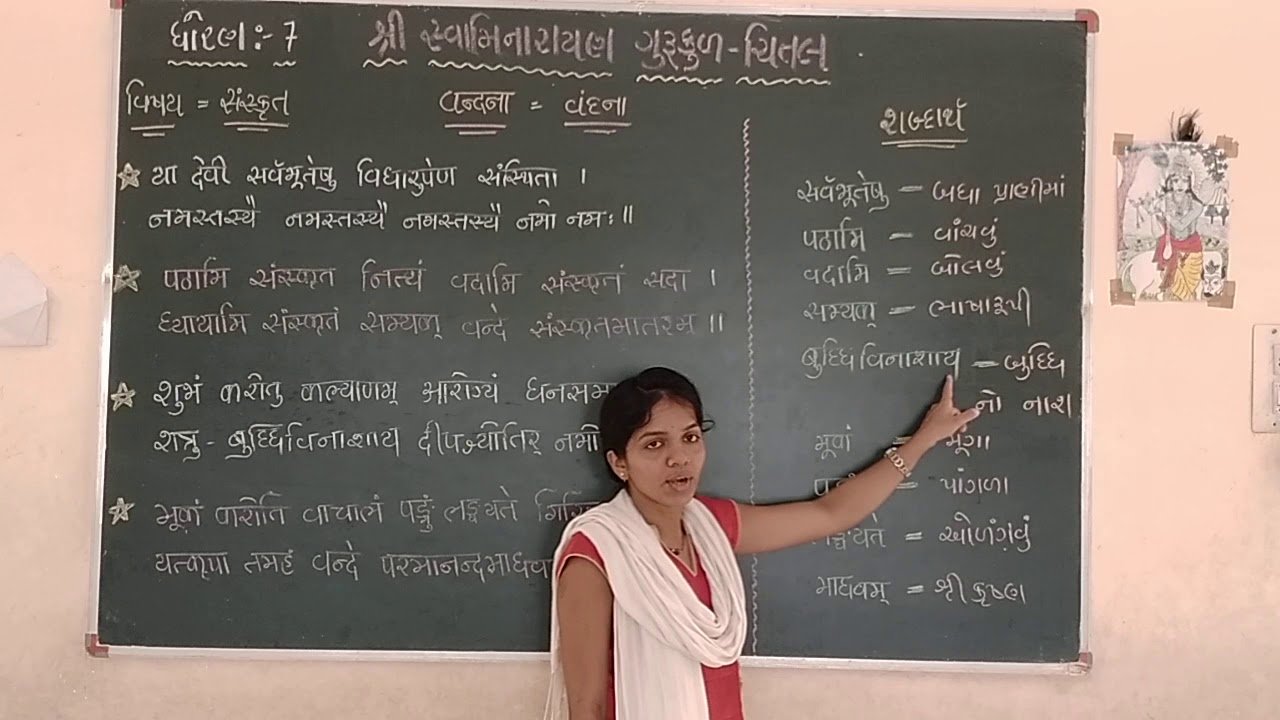 ધોરણ :- 7
શ્રી સ્વામિનારાયણ ગુરુકુળ - ચિતલ
વિષય = સંસ્કૃત
वन्दना = વંદના
या देवी सर्वभूतेषु विधारुपेण संस्थिता ।
नमस्तस्यै नमस्तस्यै नमस्तस्यै नमो नमः ॥
पठामि संस्कृतं नित्यं वदामि संस्कृतं सदा ।
ध्यायामि संस्कृतं सम्यक् वन्दे संस्कृतमातरम् ॥
शुभं करोतु कल्याणम् आरोग्यं
शत्रु - बुध्धिविनाशाय दीपज्योतिर्
मूकं करोति वाचालं पङ्गुं लङ्घयते
यत्कृपा तमहं वन्दे
શબ્દાર્થ
सर्वभूतेषु = બધા પ્રાણીમાં
पठामि = વાંચવું
वदामि = બોલવું
सम्यक् = ભાષારૂપી
बुध्धिविनाशाय = બુધ્ધિ
નો નાશ
मूकं = મૂંગા
= પાંગળા
= ઓળંગવું
माधवम् = શ્રી કૃષ્ણ